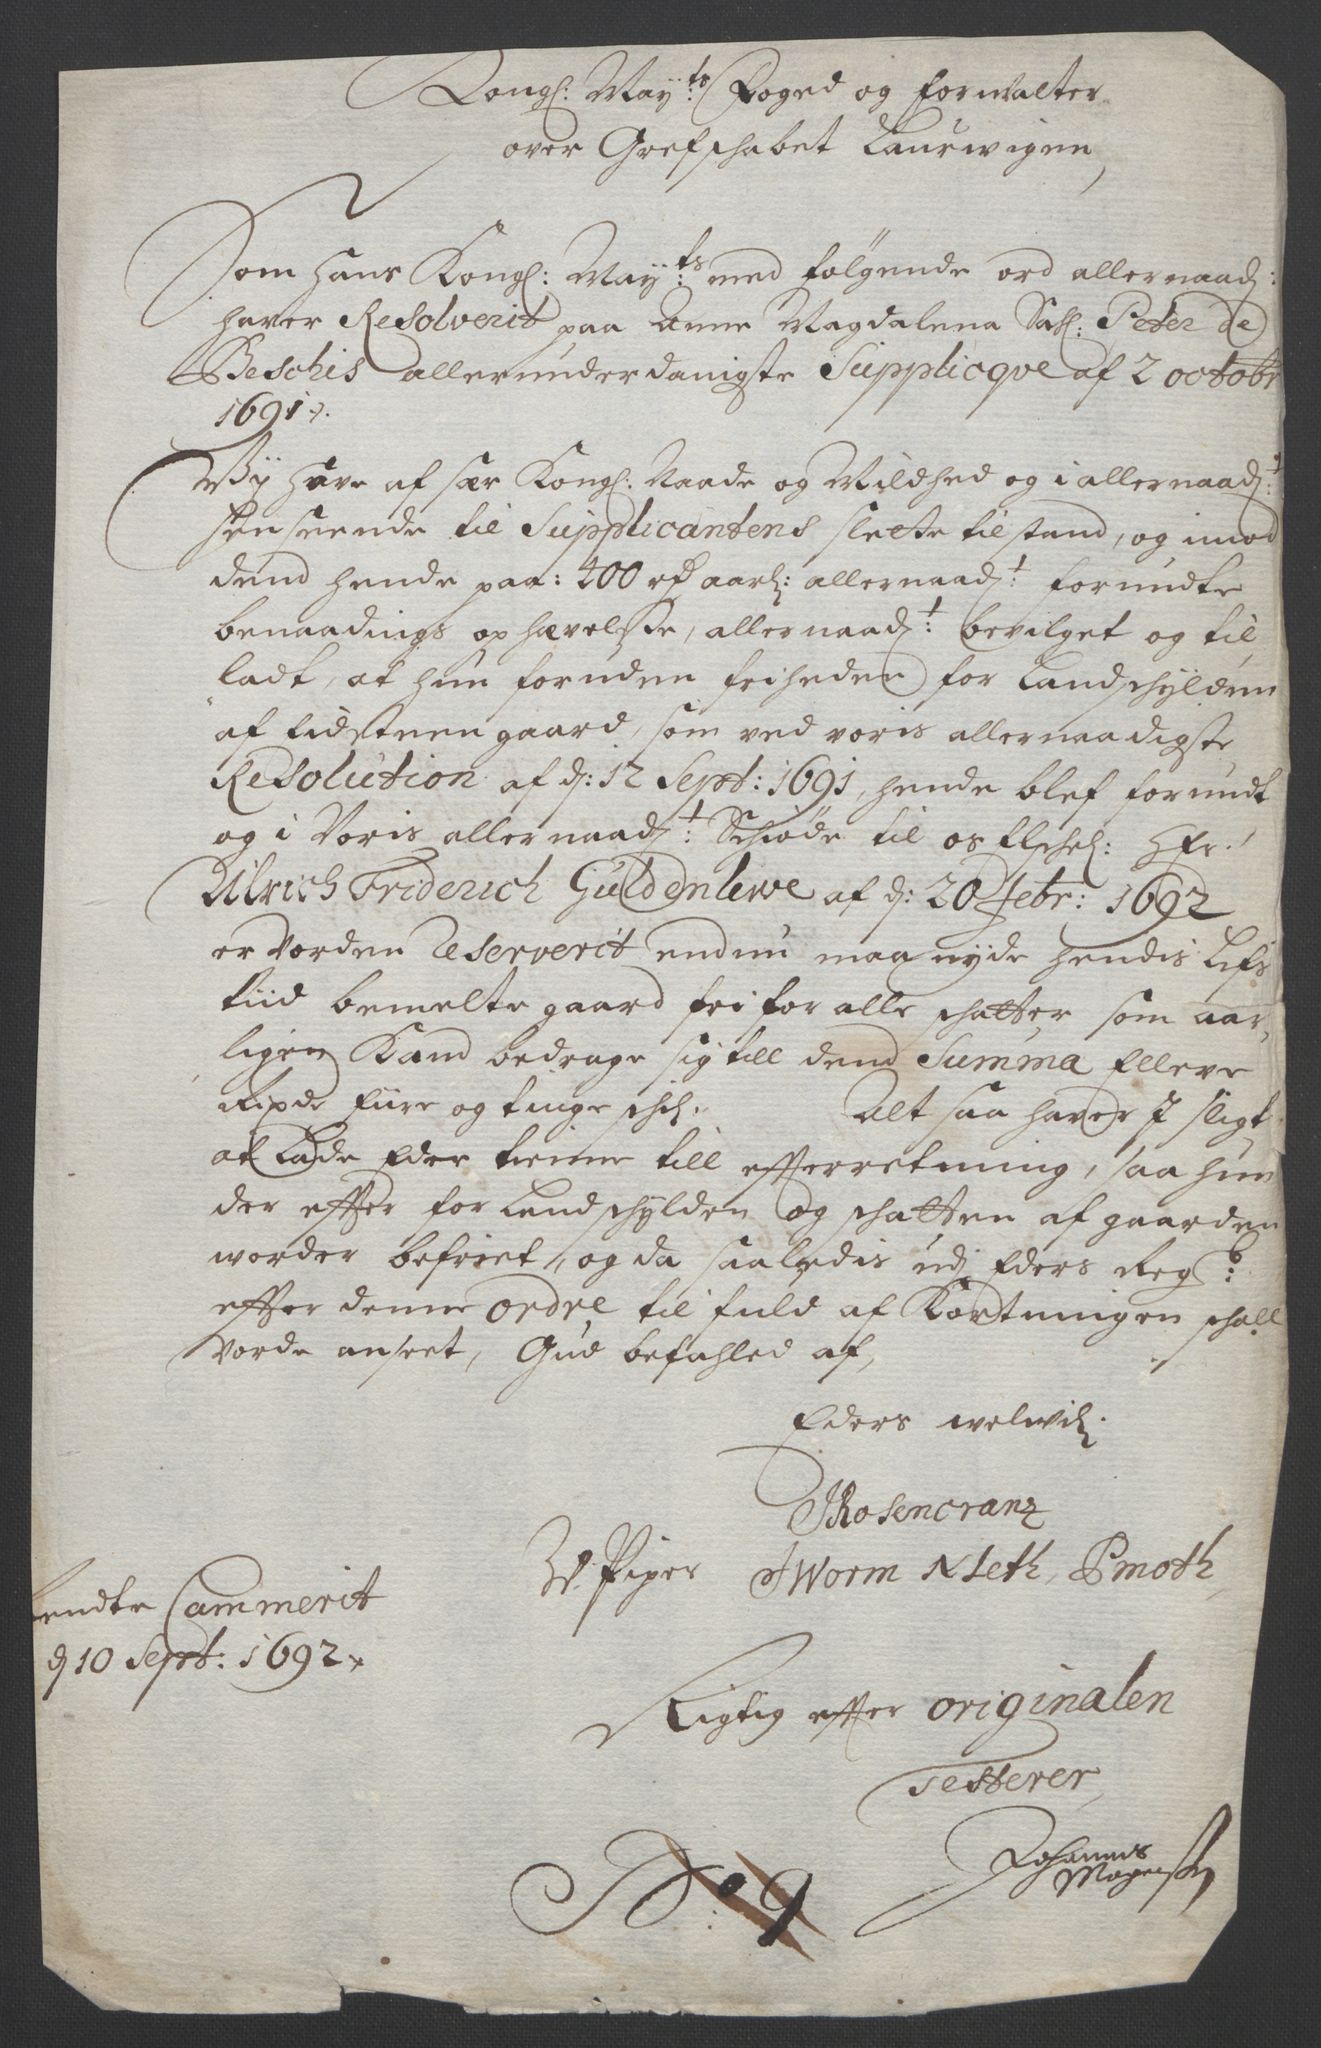 Kongl: May:ts Foged og forwalter
over Grefschabet Laurwigen,
Som hans Kongl: May:ts med følgende ord allernaad:
haver Resolverit paa Anne Magdalena Sahl: Peter de
Beschis allerunderdanigste Supplicqve af 2 octobr
1691.
Wy have af sær Kongl. Naade og Mildhed og i allernaad:t
henseende til Supplicantens slette tilstand, og imod
dend hende paa: 400 rd aarl: allernaad:t forundte
benaadings ophævelsse, allernaad:t bevilget og til
ladt, at hun foruden friheden for Landschylden
af gaard, som ved voris allernaadigste
Resolution af d: 12 Sept: 1691, hende blef forundt
og i Voris allernaad:t Schiøde til os Elschel: Hr.
Ulrich Friderich Güldenlewe af d: 20 febr: 1692
er vorden reserverit endnu maa nyde hendis Lifs
tiid bemelte gaard fri for alle schatter som aar
ligen Kand bedrage sig till dend Summa Elleve
Rixdr fiire og tiuge schl. Alt saa haver I sligt
at Lade Eder tienne till efterretning, saa hun
der effter for Landschylden og schatten af gaarden
worder befriet, og da saaledis udj Eders Reg:b
effter denne ordre til fuld afkortningen schall
vorde anseet, Gud befahled af,
Eders welwil:
Rosencranz
W. Piper JWorm NLeth, Pmoth,
Rendte Cammerit
d 10 Sept: 1692
Rigtig effter originalen
Testerer,
Johannes
Mogensen
No 9